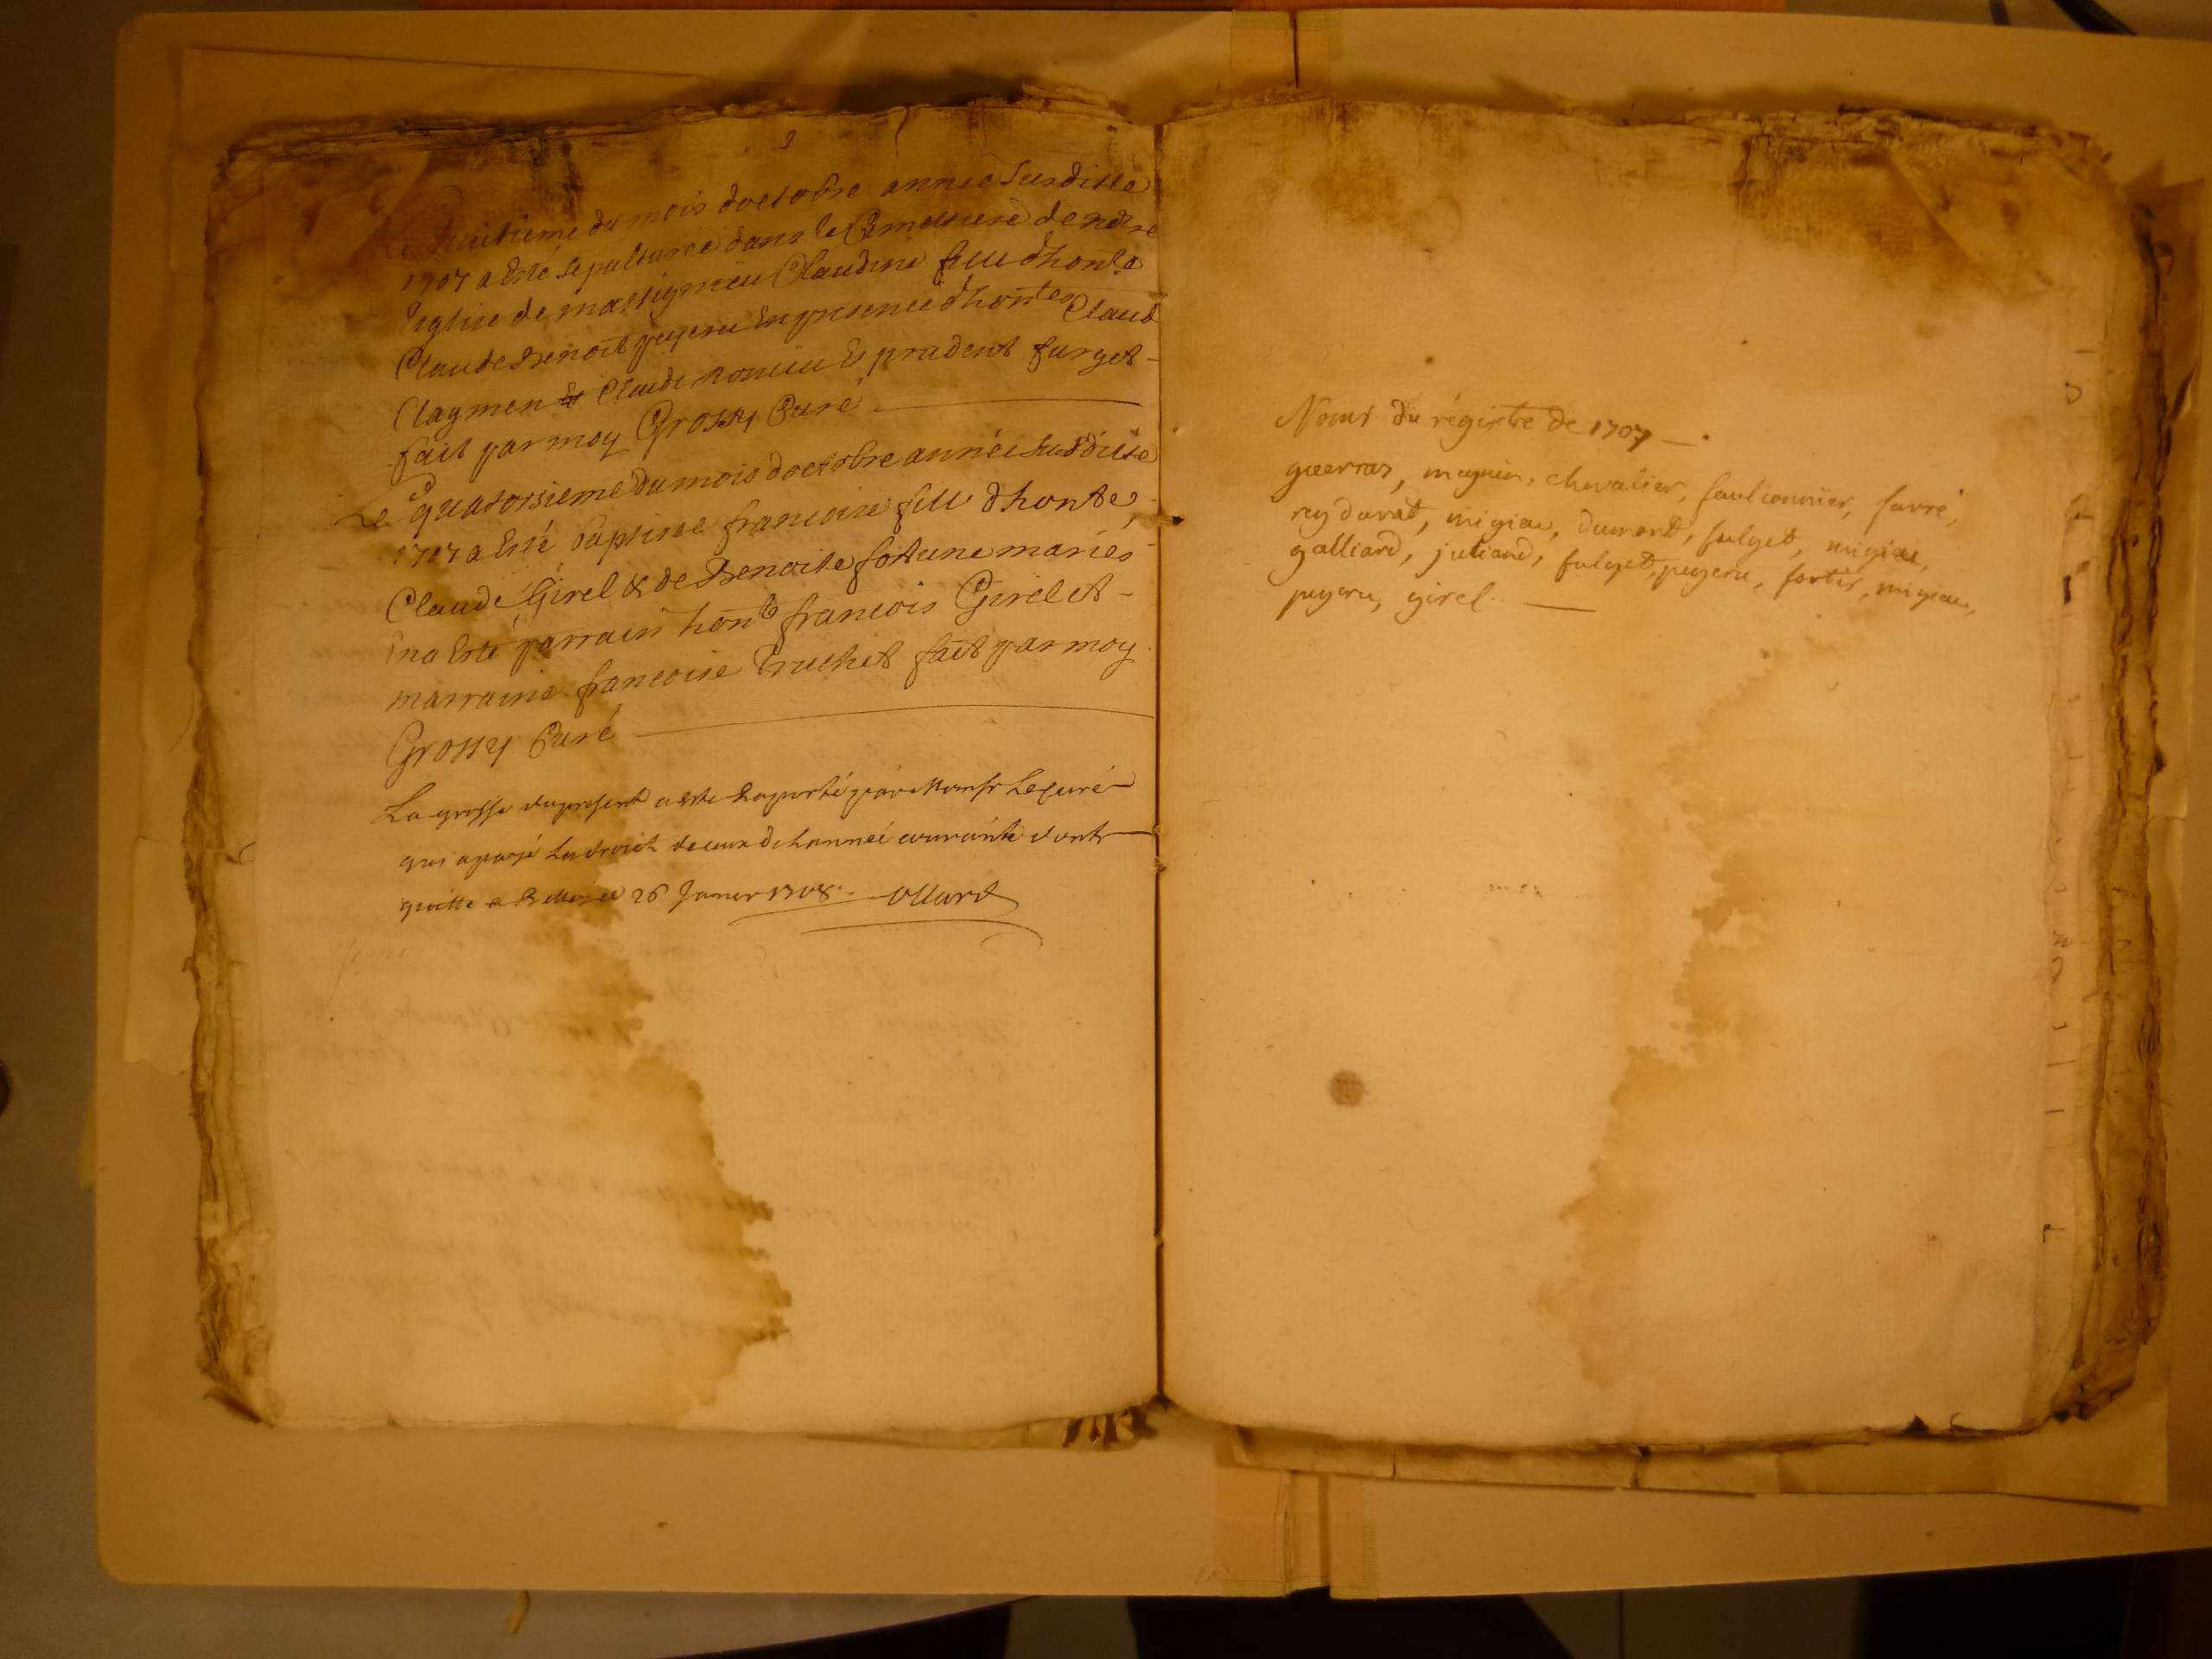 Le huitieme du mois doctobre année susditte
1707 a esté sepulturée dans le Cimettiere de notre
Eglise de massignieu Claudine fille dhonle
Claude Benoit peyseu en presence dhontes Claud
Claymen Claude romieu Et prudent furget
fait par moy Grossy Curé
Le quatorsieme du mois doctobre année susditte
1707 a esté baptisee francoise fille dhonte,
Claude Girel & de Benoite fortune mariés
En a esté parrain honle francois Girel et
marraine francoise truchet fait par moy
Grossy Curé
La grosse du present a esté raporté par Monsr Le curé
qui a payé Les droict de ceux de Lannée courante dont
quitte a Belley ce 26 Janvier 1708. Ollard
Noms du régistre de 1707
guerraz, magnin, chevalier, faulconnier, favre,
reydavat, migieu, dumont, fulget, migieu,
galliard, juliand, fulget, peyeru, fortis, migieu,
peyeru, girel